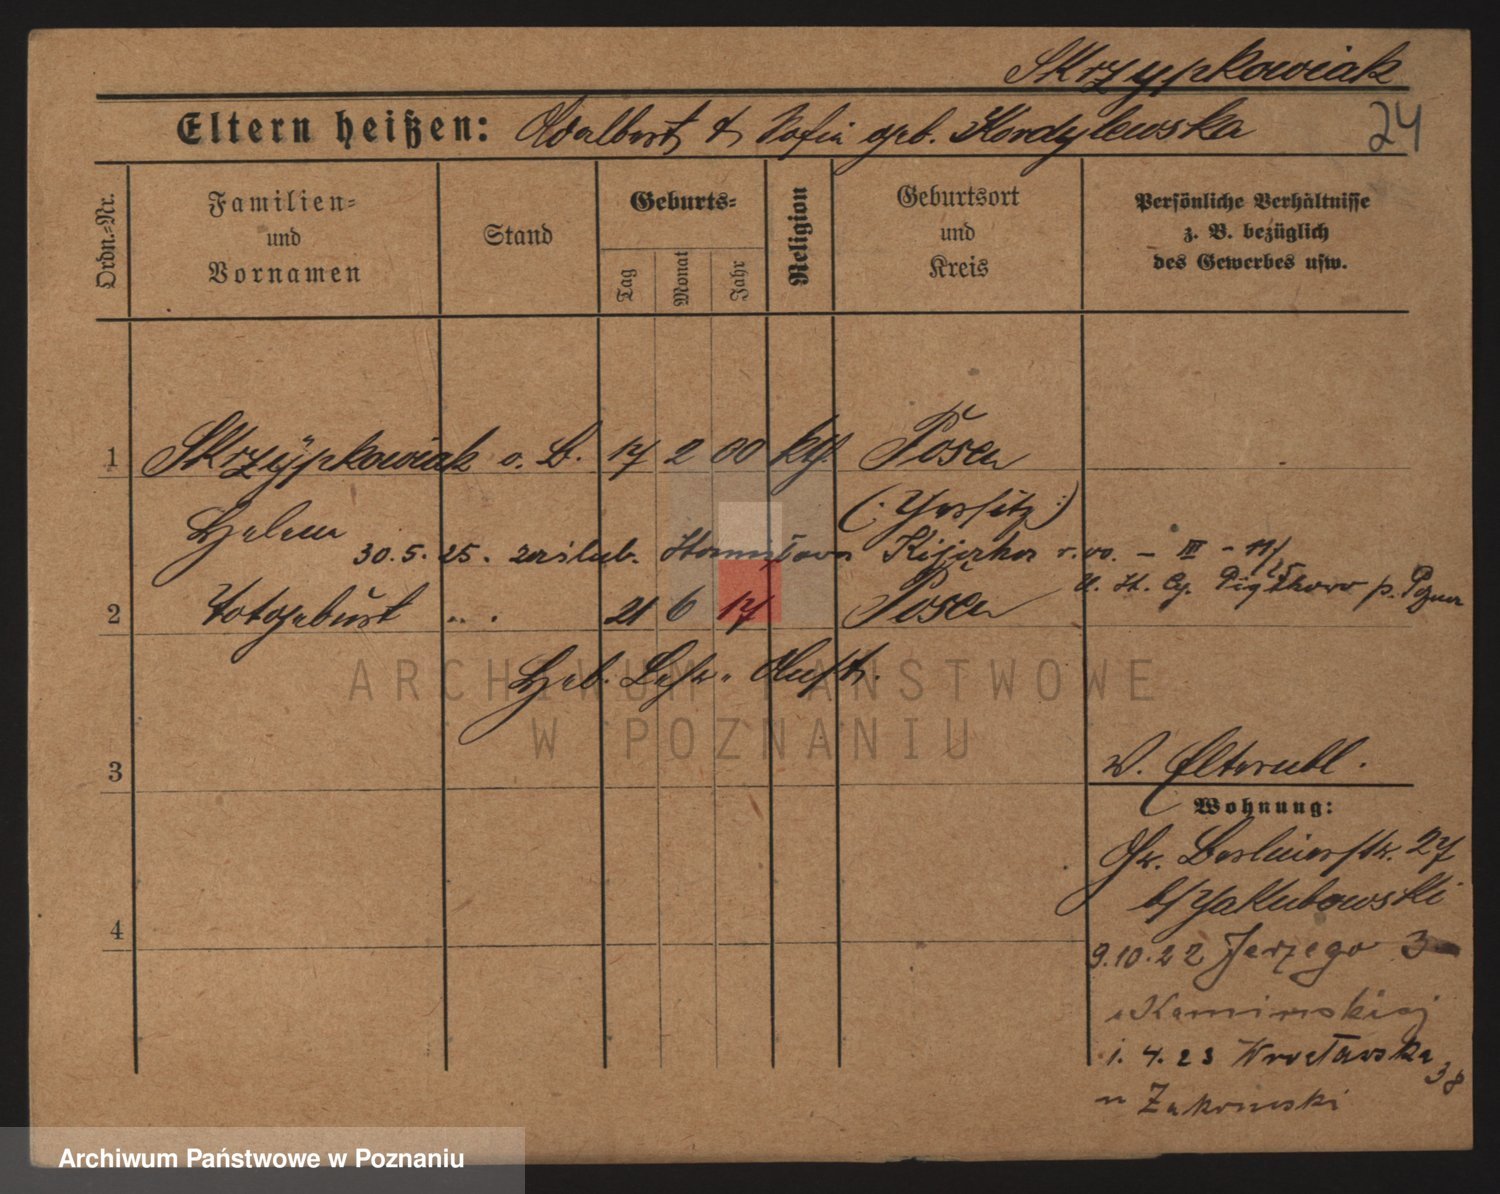 Skrzypkowiak
Eltern heißen: Adalbert & Sofia geb. Kordylewska
24
Ordn.-Nr.
Familien-
und
Vornamen
Stand
Geburts-
Tag
Monat
Jahr
Religion
Geburtsort
und
Kreis
Persönliche Verhältnisse
z. B. bezüglich
des Gewerbes usw.
1 Skrzypkowiak o. B. 17 2 00 kg. Posen
Helene (: Jersitz :)
30.5.25. zaślub. Stanisława Kijorka r. 00. - III - 11/25
U. St. Cy. Piątkowo p. Pozn
2 Totgeburt " . 21 6 17 Posen
Geb.
ARCHIWUM PAŃSTWOWE
W POZNANIU
3
W. Elternbl.
Wohnung:
Gr. Berlinerstr. 27
b/ Jakubowski
4
9.10.22 Jerzego 3
u Kamińskiej
1. 4. 23 Wrocławska 38
u Zakrzewski
Archiwum Państwowe w Poznaniu